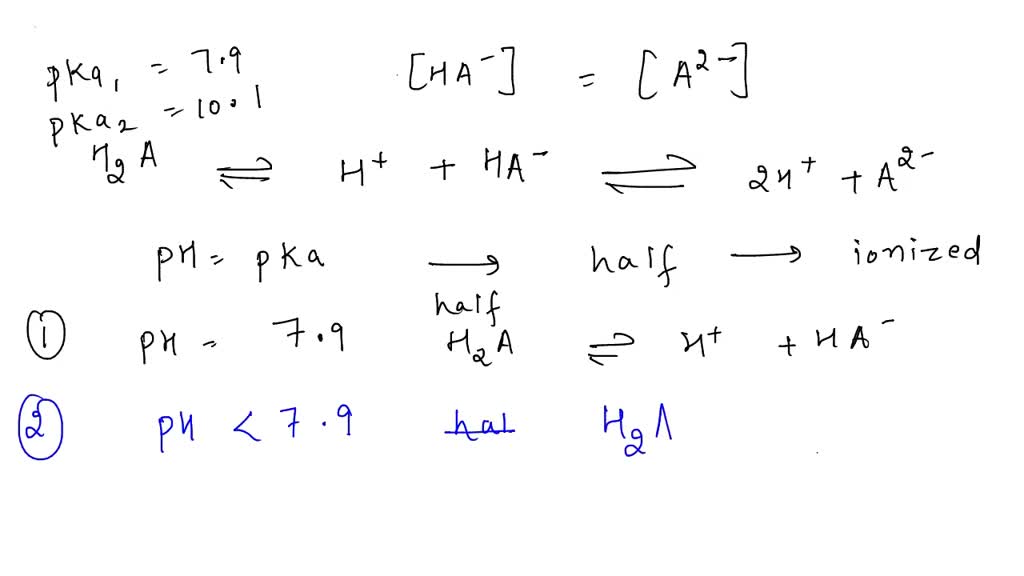 pka₁ = 7.9 [HA⁻] = [A²⁻]
pka₂ = 10.1
H₂A ⇌ H⁺ + HA⁻ ⇌ 2H⁺ + A²⁻
pH = pka → half → ionized
half
① pH = 7.9 H₂A ⇌ H⁺ + HA⁻
② pH < 7.9 hal H₂A